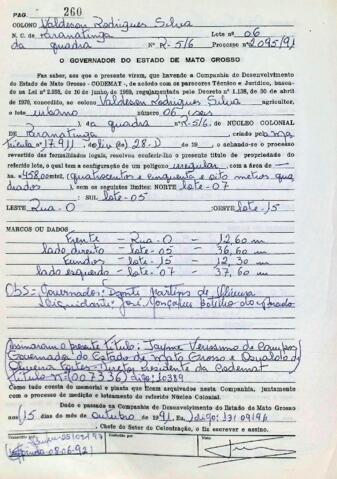 PAG. 260
COLONO Valdeson Rodrigues Silva
N. C. Paranatinga Lote nº 06
da quadra Nº R-5/6 Processo nº 2095/91
O GOVERNADOR DO ESTADO DE MATO GROSSO
Faz saber, aos que o presente virem, que havendo a Companhia de Desenvolvimento
do Estado de Mato Grosso - CODEMAT -, de acôrdo com os pareceres Técnico e Jurídico, basea-
dos na Lei nº de junho de 1969, regulamentada pelo Decreto n.º 1.138, de 30 de abril
de 1970, concedido, ao colono Valdeson Rodrigues Silva agricultor,
o lote urbano nº 06 (seis
) da quadra nº R-5/6. DO NÚCLEO COLONIAL
DE Paranatinga, criado pelo
tricula nº 17.911 do liv. 28-D de 19 , e achando-se o processo
revestido das formalidades legais, resolveu conferir-lhe o presente título de propriedade do
referido lote, o qual tem a configuração de um polígono irregular, com a área de -
ha. =458,00m2, (quatrocentos e cinquenta e oito metros qua
drados), com os seguintes limites: NORTE lote-07
SUL lote-05
LESTE Rua-O OESTE lote-15
MARCOS OU DADOS
Frente - Rua-O - 12,60 m
lado direito - lote-05 - 36,60 m
Fundos - lote-15 - 12,30 m
lado esquerdo - lote-07 - 37,60 m
Obs= Governador: Dante Martins de Oliveira
Liquidante: José Gonçalves Botelho do Prado
(Assinaram o presente título: Jayme Verissimo de Campos
Governador do Estado de Mato Grosso e Osvaldo de
Oliveira Fortes - Diretor Presidente da Codemat
Título Nº (007336) digo: 10389
Como tudo consta do memorial e planta que ficam arquivados nesta Companhia, juntamente
com o processo de medição e loteamento do referido Núcleo Colonial.
Dado e passado na Companhia de Desenvolvimento do Estado de Mato Grosso
aos (15 dias do mês de outubro de 1991, Eu) digo: 13/09/96
, Chefe do Setor de Colonização, o fiz escrever e assino.
Transcrito por
Conferido por
Visto
08.06.92